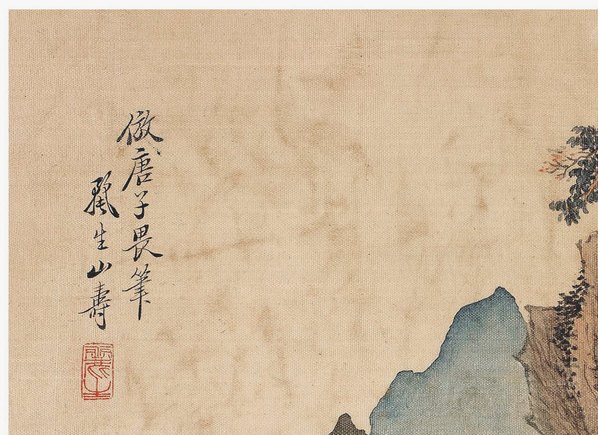 倣唐子畏筆
麗生山壽